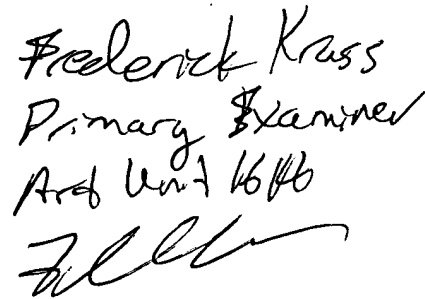 Frederick Krass
Primary Examiner
Art Unit 1646